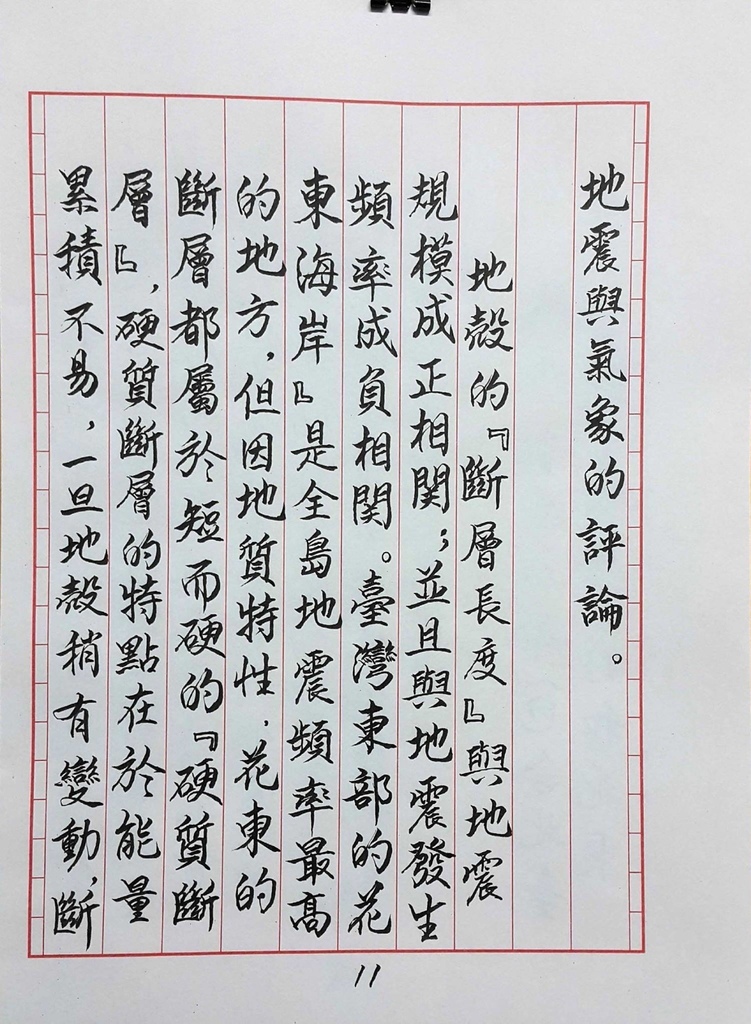 地震與氣象的評論。
地殼的『斷層長度』與地震
規模成正相関；並且與地震發生
頻率成負相関。臺灣東部的花
東海岸』是全島地震頻率最高
的地方，但因地質特性，花東的
斷層都屬於短而硬的『硬質斷
層』，硬質斷層的特點在於能量
累積不易，一旦地殼稍有變動，斷
11